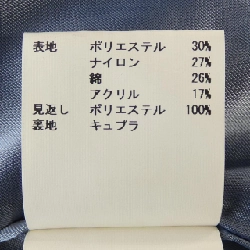 表地 ポリエステル 30%
ナイロン 27%
綿 26%
アクリル 17%
見返し ポリエステル 100%
裏地 キュプラ